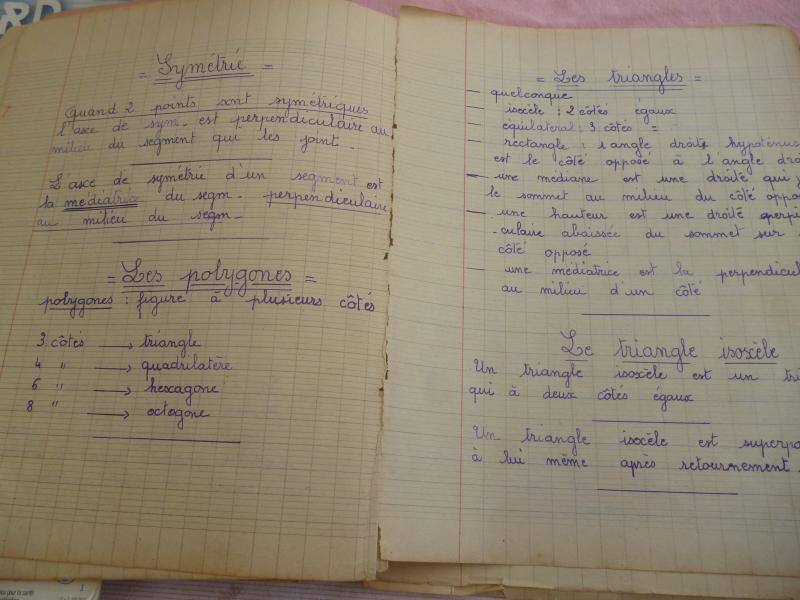 = Symétrie =
Quand 2 points sont symétriques
l'axe de sym. est perpendiculaire au
milieu du segment qui les joint.
L'axe de symétrie d'un segment est
la médiatrice du segm. perpendiculaire
au milieu du segm.
= Les polygones =
polygones : figure à plusieurs côtés
3 côtés → triangle
4 " → quadrilatère
6 " → hexagone
8 " → octogone
= Les triangles =
— quelconque
— isocèle : 2 côtés égaux
— équilatéral : 3 côtés =
— rectangle : 1 angle droit hypoténus
est le côté opposé à l'angle dro
— une médiane est une droite qui
le sommet au milieu du côté oppo
— une hauteur est une droite perpe
culaire abaissée du sommet sur
côté opposé
— une médiatrice est la perpendicul
au milieu d'un côté
Le triangle isoxèle
Un triangle isoxèle est un tri
qui à deux côtés égaux
Un triangle isoxèle est superpo
à lui même après retournement.